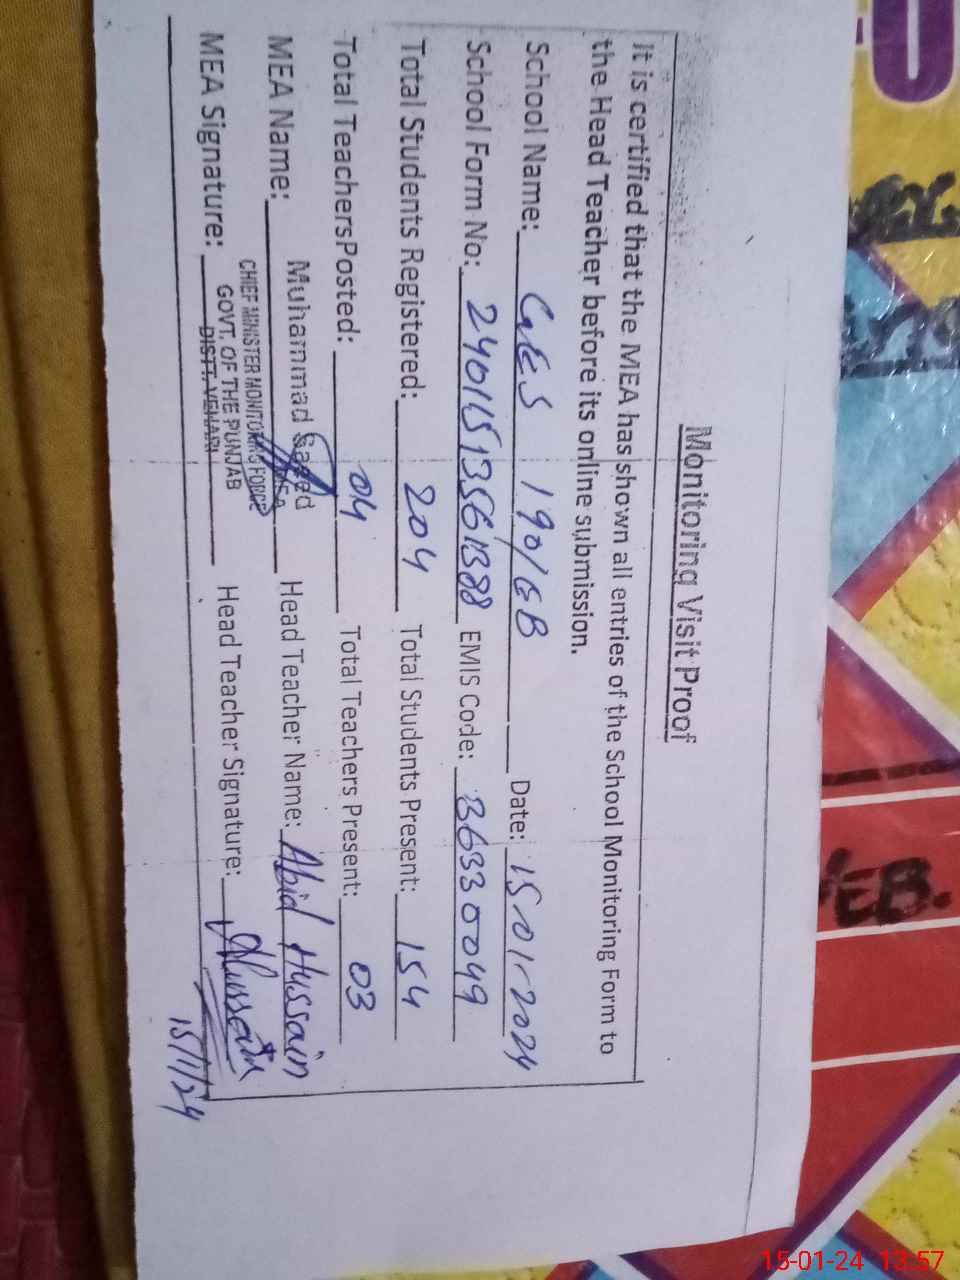 Monitoring Visit Proof
It is certified that the MEA has shown all entries of the School Monitoring Form to
the Head Teacher before its online submission.
School Name: GES 190/EB Date: 15-01-2024
School Form No: 2401513561388 EMIS Code: 36330049
Total Students Registered: 204 Total Students Present: 154
Total TeachersPosted: 04 Total Teachers Present: 03
MEA Name: Muhammad Saeed Head Teacher Name: Abid Hussain
MEA
CHIEF MINISTER MONITORING FORCE
GOVT. OF THE PUNJAB
DISTT. VEHARI
MEA Signature: Head Teacher Signature: Hussain
15/1/24
EB.
15-01-24 13:57